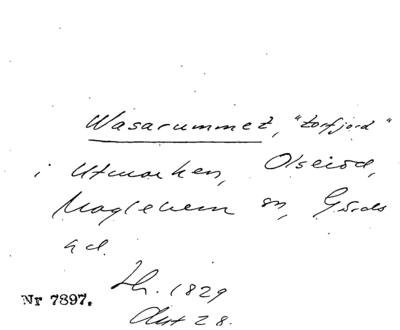 Wasarummet, "torfjord"
i Utmarken, Olseröd,
Maglehem sn, Gärds
hd.
Th. 1829
Avst 28.
Nr 7897.